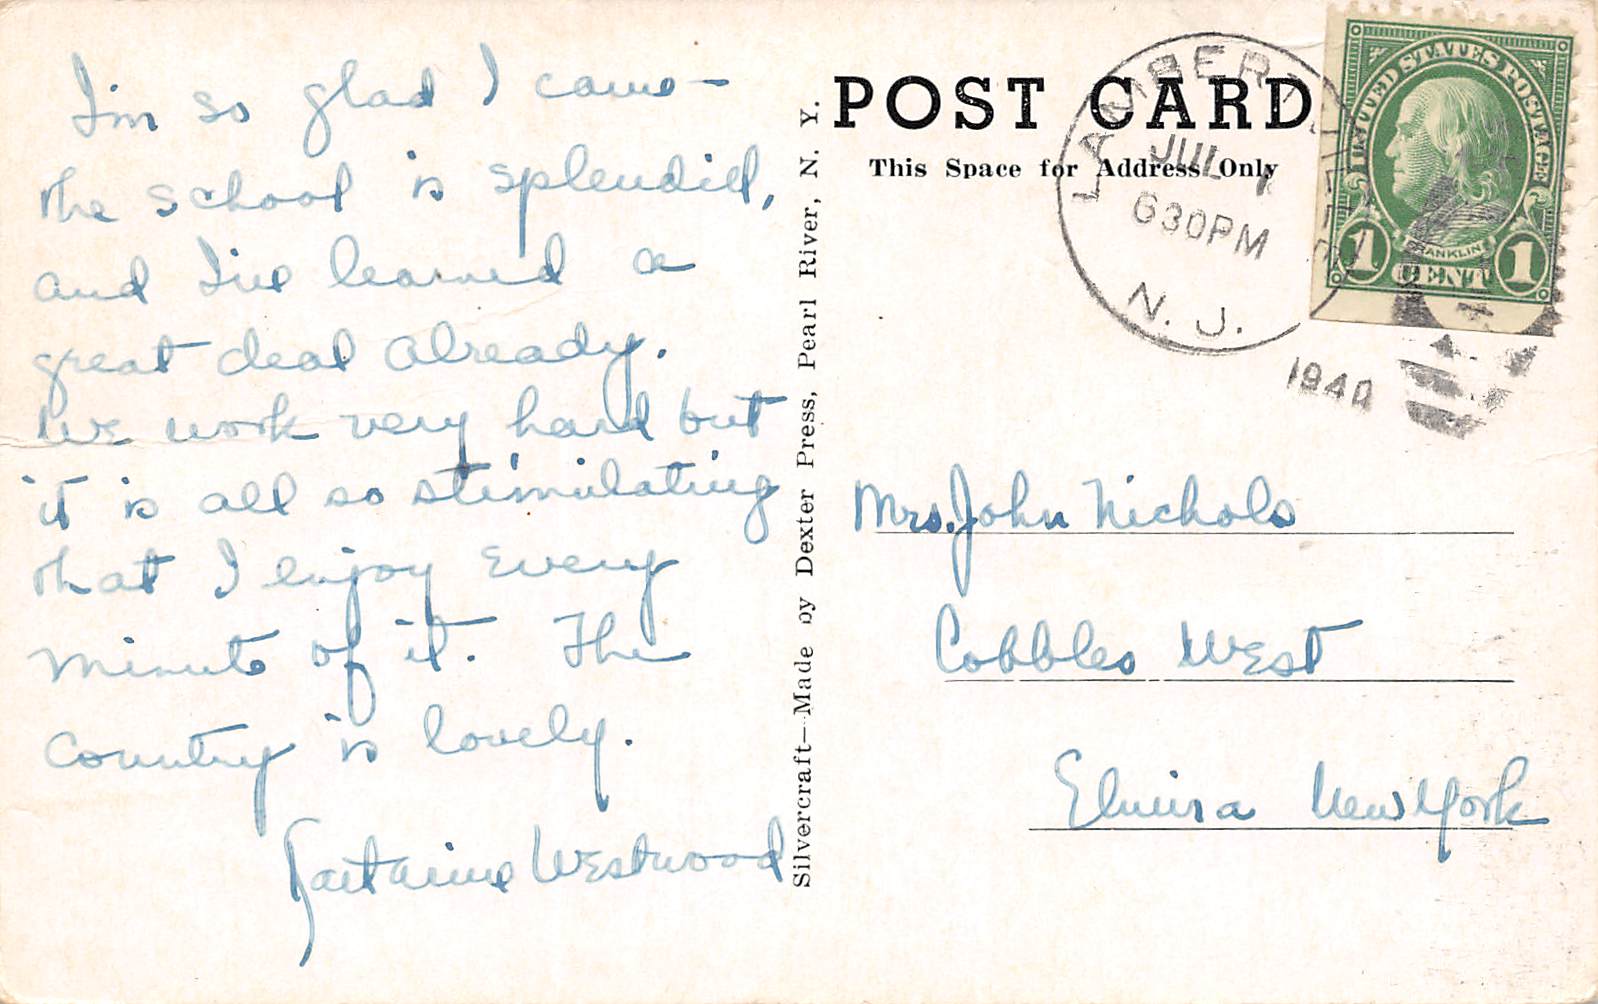 I'm so glad I came—
the school is splendid,
and I've learned a
great deal already.
We work very hard but
it is all so stimulating
that I enjoy every
minute of it. The
country is lovely.
Katharine Westwood
Silvercraft—Made by Dexter Press, Pearl River, N. Y.
POST CARD
This Space for Address Only
LAMBERTVILLE
JUL 1
630PM
N. J.
1940
UNITED STATES POSTAGE
FRANKLIN
1 CENT 1
Mrs. John Nichols
Cobbles West
Elmira New York